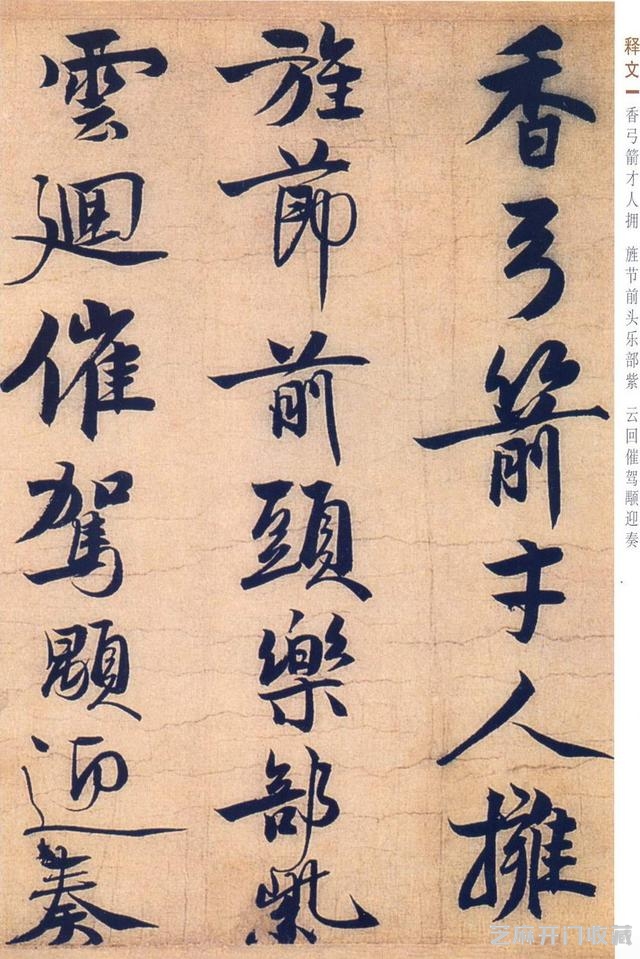 释文
香弓箭才人拥 旌节前头乐部紫 云回催驾颙迎奏
香弓箭才人擁
旌節前頭樂部紫
雲迴催駕顒迎奏
芝麻开门收藏